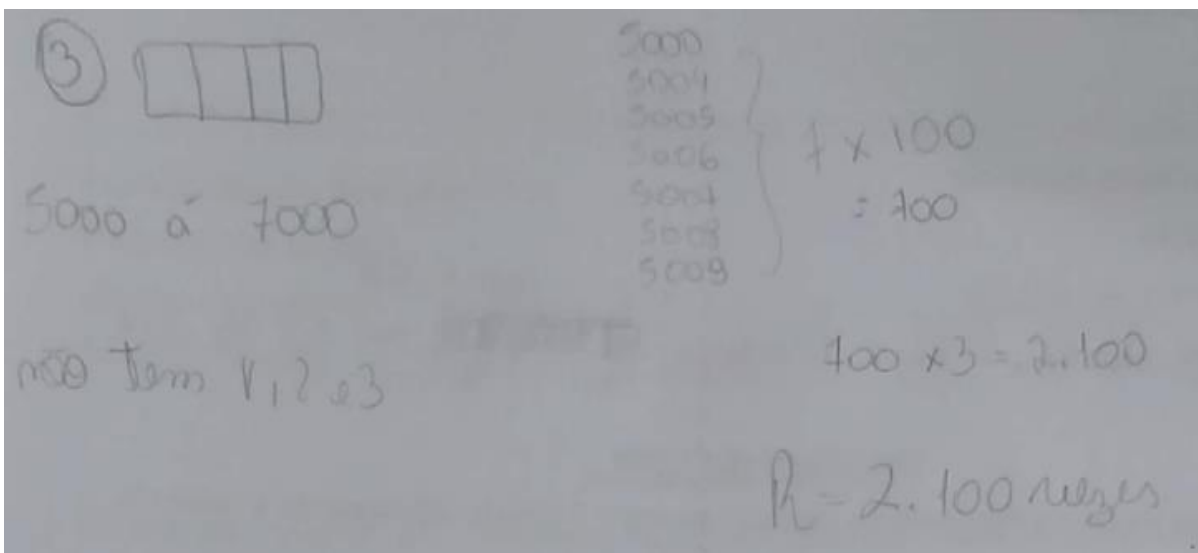 3
5000 á 7000
não tem 1, 2 e 3
5000
5004
5005
5006
5007
5008
5009
7 x 100
= 700
700 x 3 = 2.100
R - 2.100 vezes